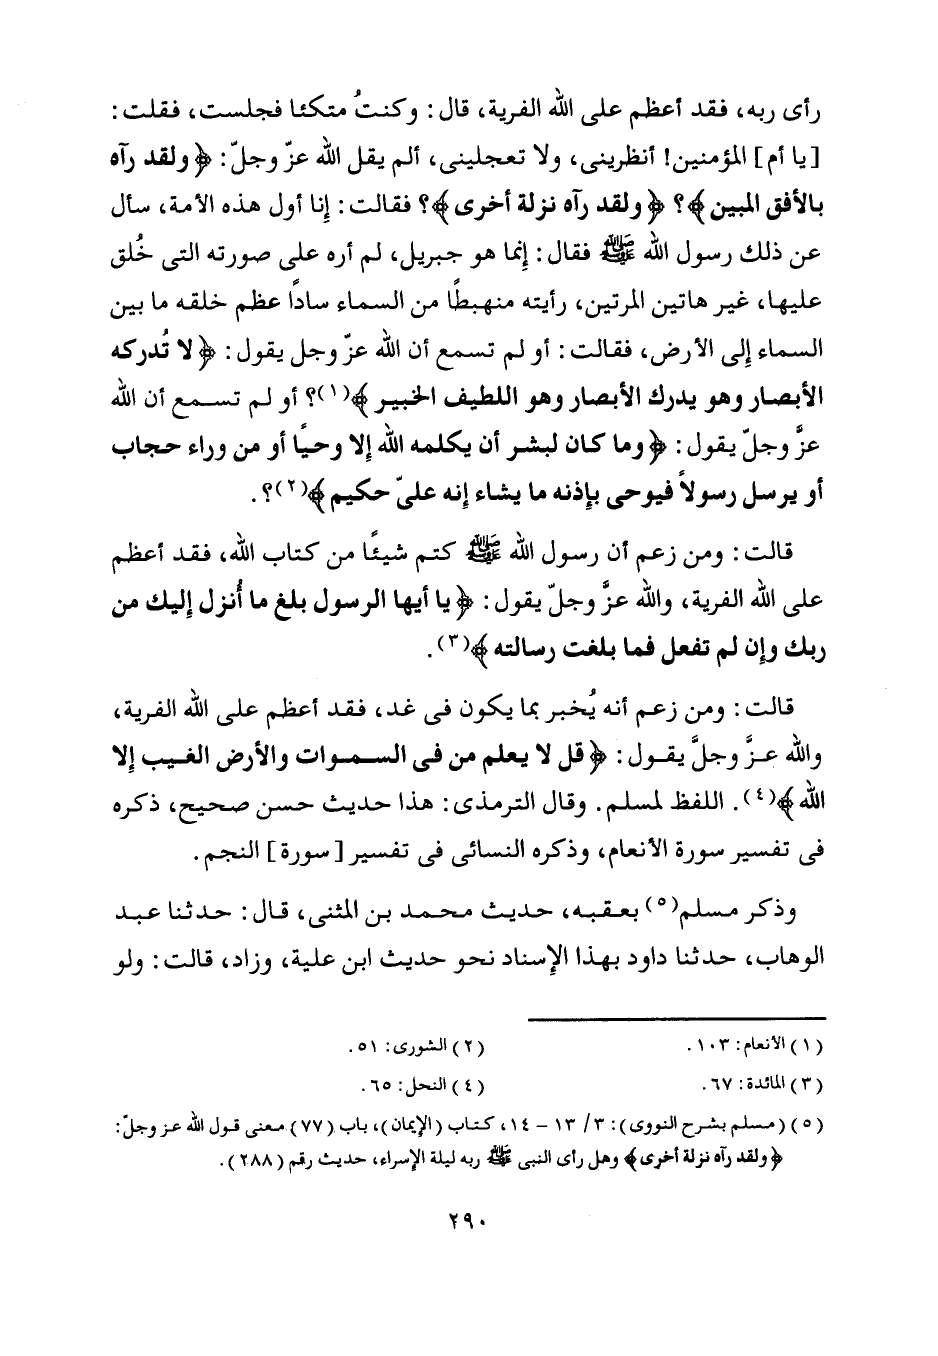 رأى ربه، فقد أعظم على الله الفرية، قال: وكنتُ متكئا فجلست، فقلت:
[يا أم] المؤمنين! أنظرينى، ولا تعجلينى، ألم يقل الله عزّ وجلّ: ﴿ولقد رآه
بالأفق المبين﴾؟ ﴿ولقد رآه نزلة أخرى﴾؟ فقالت: إنا أول هذه الأمة، سأل
عن ذلك رسول الله ﷺ فقال: إنما هو جبريل، لم أره على صورته التى خُلق
عليها، غير هاتين المرتين، رأيته منهبطًا من السماء سادًا عظم خلقه ما بين
السماء إلى الأرض، فقالت: أو لم تسمع أن الله عزّ وجل يقول: ﴿لا تُدركه
الأبصار وهو يدرك الأبصار وهو اللطيف الخبير﴾(١)؟ أو لم تسمع أن الله
عزَّ وجلّ يقول: ﴿وما كان لبشر أن يكلمه الله إلا وحيًا أو من وراء حجاب
أو يرسل رسولاً فيوحى بإذنه ما يشاء إنه علىّ حكيم﴾(٢)؟.
قالت: ومن زعم أن رسول الله ﷺ كتم شيئًا من كتاب الله، فقد أعظم
على الله الفرية، والله عزَّ وجلّ يقول: ﴿يا أيها الرسول بلغ ما أُنزل إليك من
ربك وإن لم تفعل فما بلغت رسالته﴾(٣).
قالت: ومن زعم أنه يُخبر بما يكون فى غد، فقد أعظم على الله الفرية،
والله عزَّ وجلَّ يقول: ﴿قل لا يعلم من فى السموات والأرض الغيب إلا
الله﴾(٤). اللفظ لمسلم. وقال الترمذى: هذا حديث حسن صحيح، ذكره
فى تفسير سورة الأنعام، وذكره النسائى فى تفسير [سورة] النجم.
وذكر مسلم(٥) بعقبه، حديث محمد بن المثنى، قال: حدثنا عبد
الوهاب، حدثنا داود بهذا الإسناد نحو حديث ابن علية، وزاد، قالت: ولو
(١) الأنعام: ١٠٣. (٢) الشورى: ٥١.
(٣) المائدة: ٦٧. (٤) النحل: ٦٥.
(٥) (مسلم بشرح النووى): ٣/ ١٣ - ١٤، كتاب (الإيمان)، باب (٧٧) معنى قول الله عز وجلّ:
﴿ولقد رآه نزلة أخرى﴾ وهل رأى النبى ﷺ ربه ليلة الإسراء، حديث رقم (٢٨٨).
٢٩٠